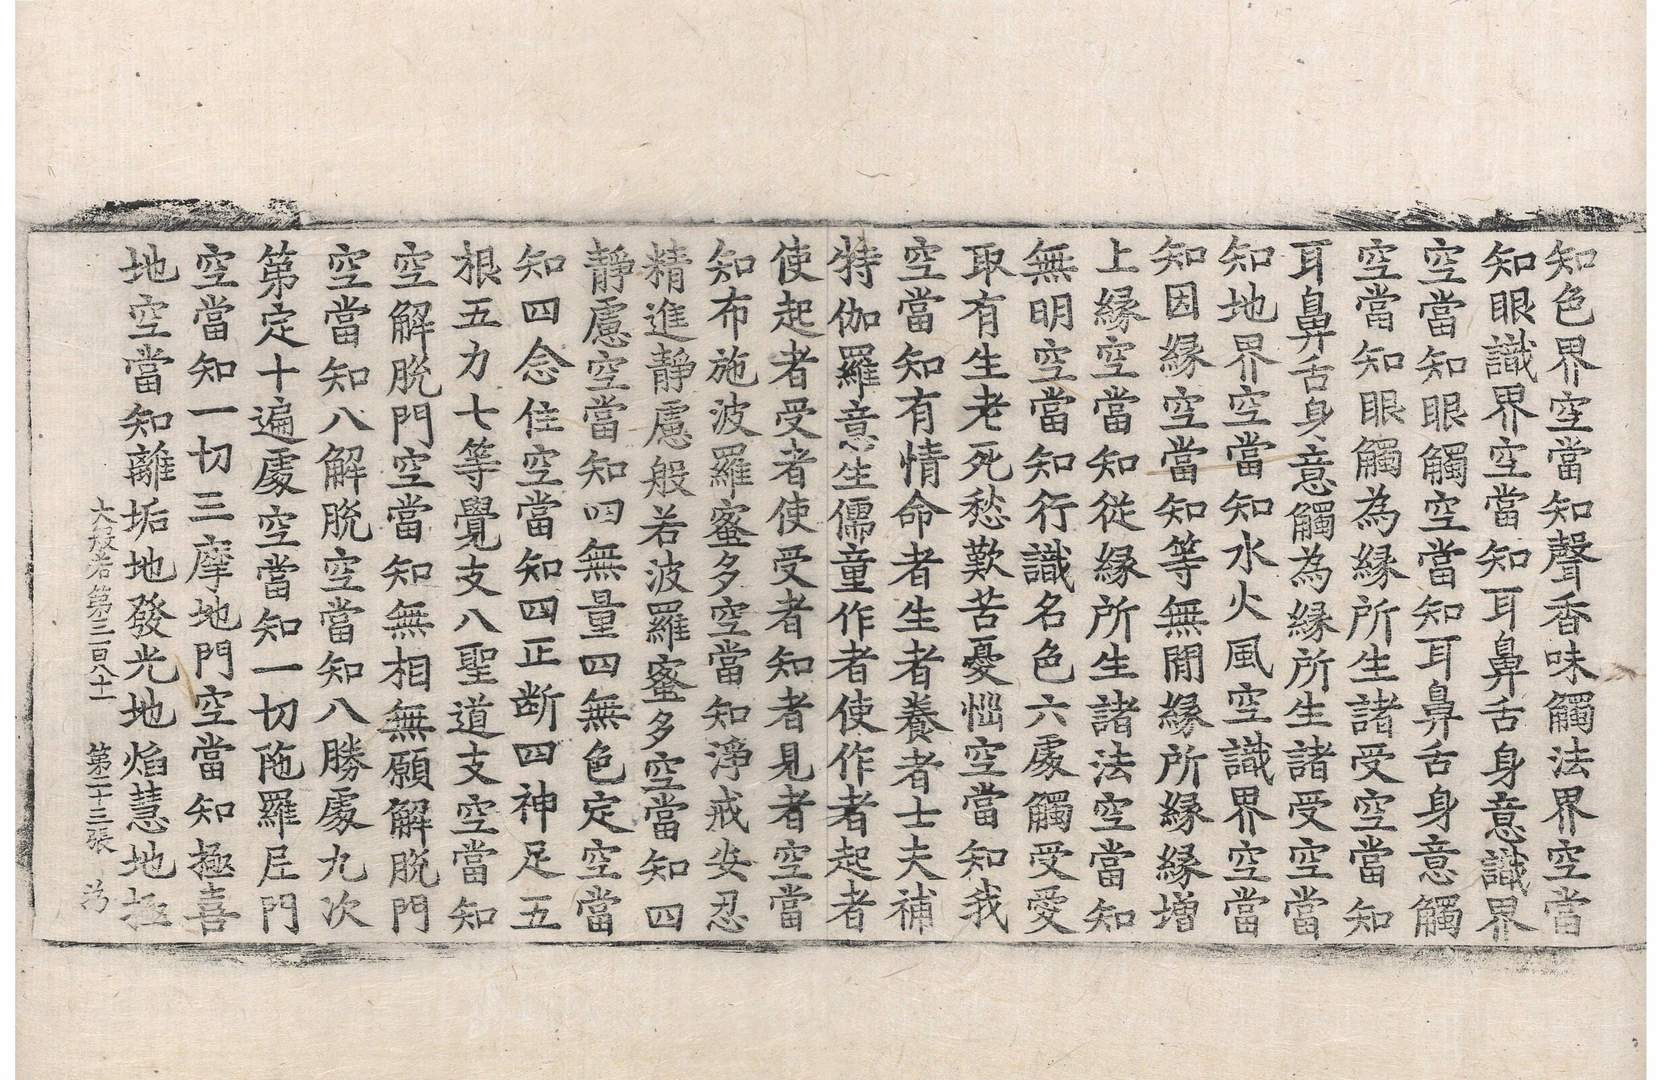 知色界空當知聲香味觸法界空當
知眼識界空當知耳鼻舌身意識界
空當知眼觸空當知耳鼻舌身意觸
空當知眼觸為緣所生諸受空當知
耳鼻舌身意觸為緣所生諸受空當
知地界空當知水火風空識界空當
知因緣空當知等無間緣所緣緣增
上緣空當知從緣所生諸法空當知
無明空當知行識名色六處觸受愛
取有生老死愁歎苦憂惱空當知我
空當知有情命者生者養者士夫補
特伽羅意生儒童作者使作者起者
使起者受者使受者知者見者空當
知布施波羅蜜多空當知淨戒安忍
精進靜慮般若波羅蜜多空當知四
靜慮空當知四無量四無色定空當
知四念住空當知四正斷四神足五
根五力七等覺支八聖道支空當知
空解脫門空當知無相無願解脫門
空當知八解脫空當知八勝處九次
第定十遍處空當知一切陁羅尼門
空當知一切三摩地門空當知極喜
地空當知離垢地發光地焰慧地極
大般若第三百八十 第二十三張